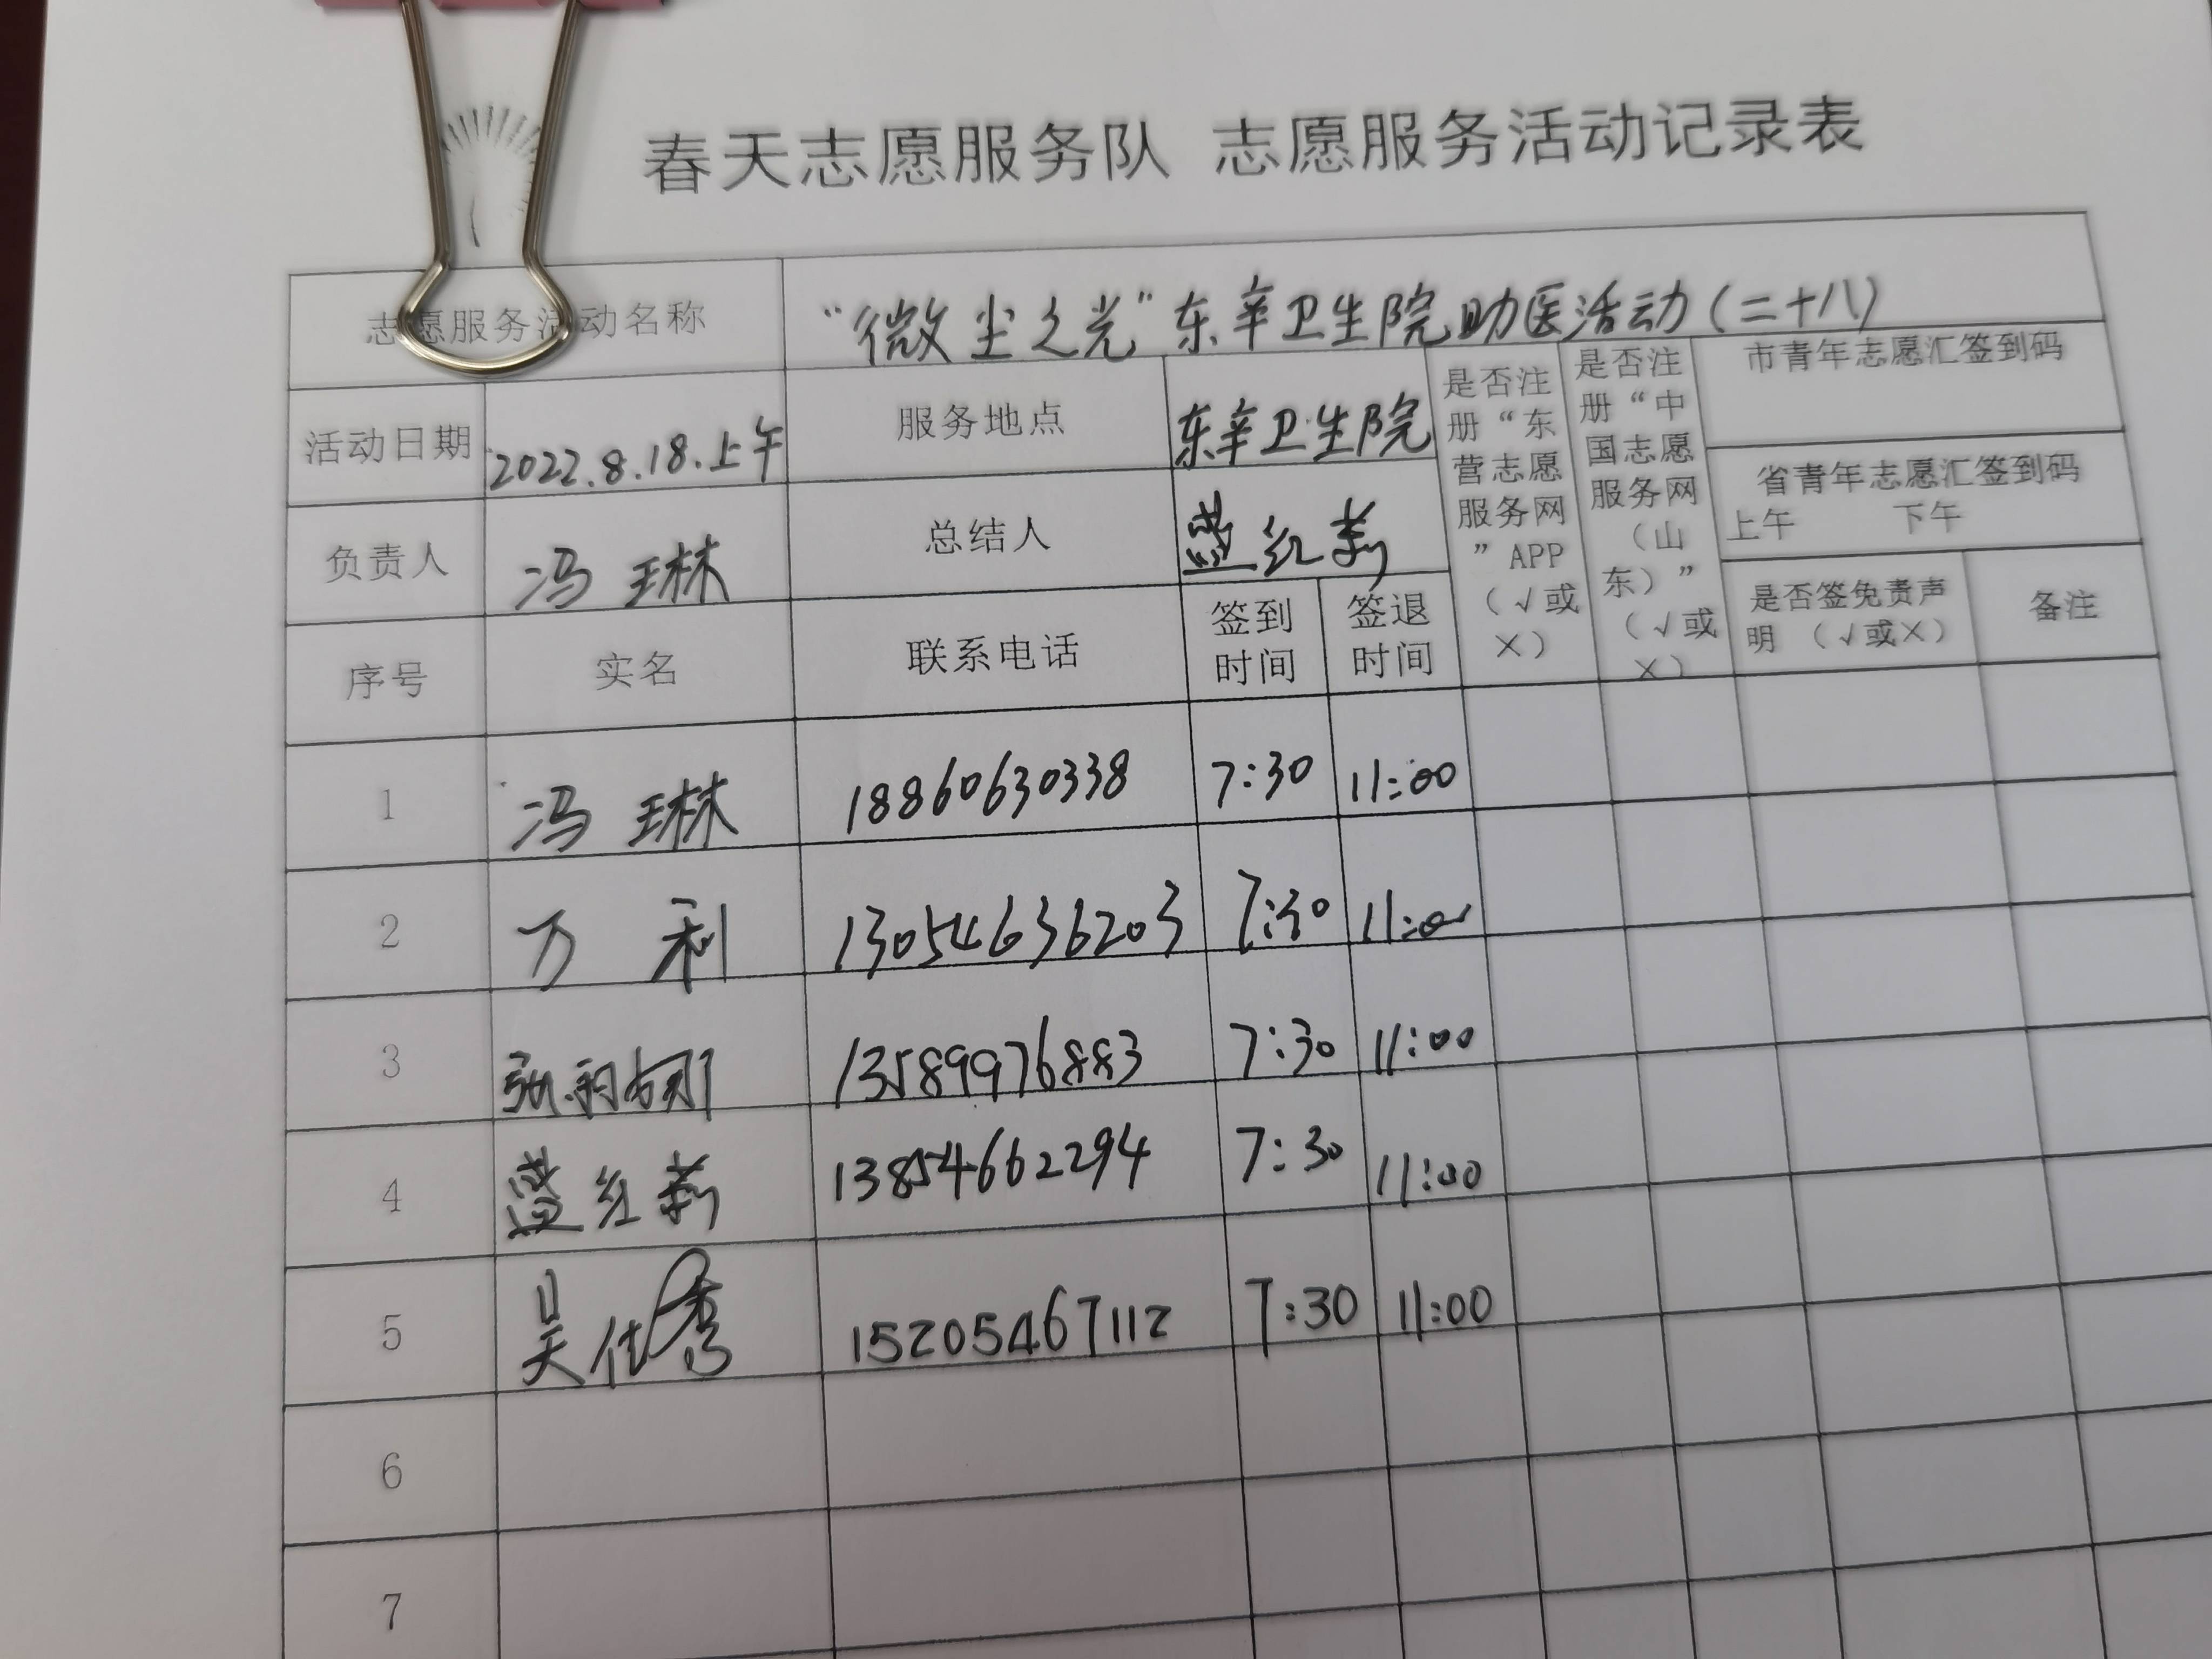 春天志愿服务队 志愿服务活动记录表
志愿服务活动名称 “微尘之光”东辛卫生院助医活动(二十八)
活动日期 2022.8.18.上午 服务地点 东辛卫生院
是否注册“东营志愿服务网”APP（√或×）
是否注册“中国志愿服务网（山东）”（√或×）
市青年志愿汇签到码
省青年志愿汇签到码
上午 下午
负责人 冯琳 总结人 盖红莉
序号 实名 联系电话 签到时间 签退时间 是否签免责声明（√或×） 备注
1 冯琳 18860630338 7:30 11:00
2 万利 13054636203 7:30 11:00
3 13589976883 7:30 11:00
4 盖红莉 13854662294 7:30 11:00
5 吴仕秀 15205467112 7:30 11:00
6
7